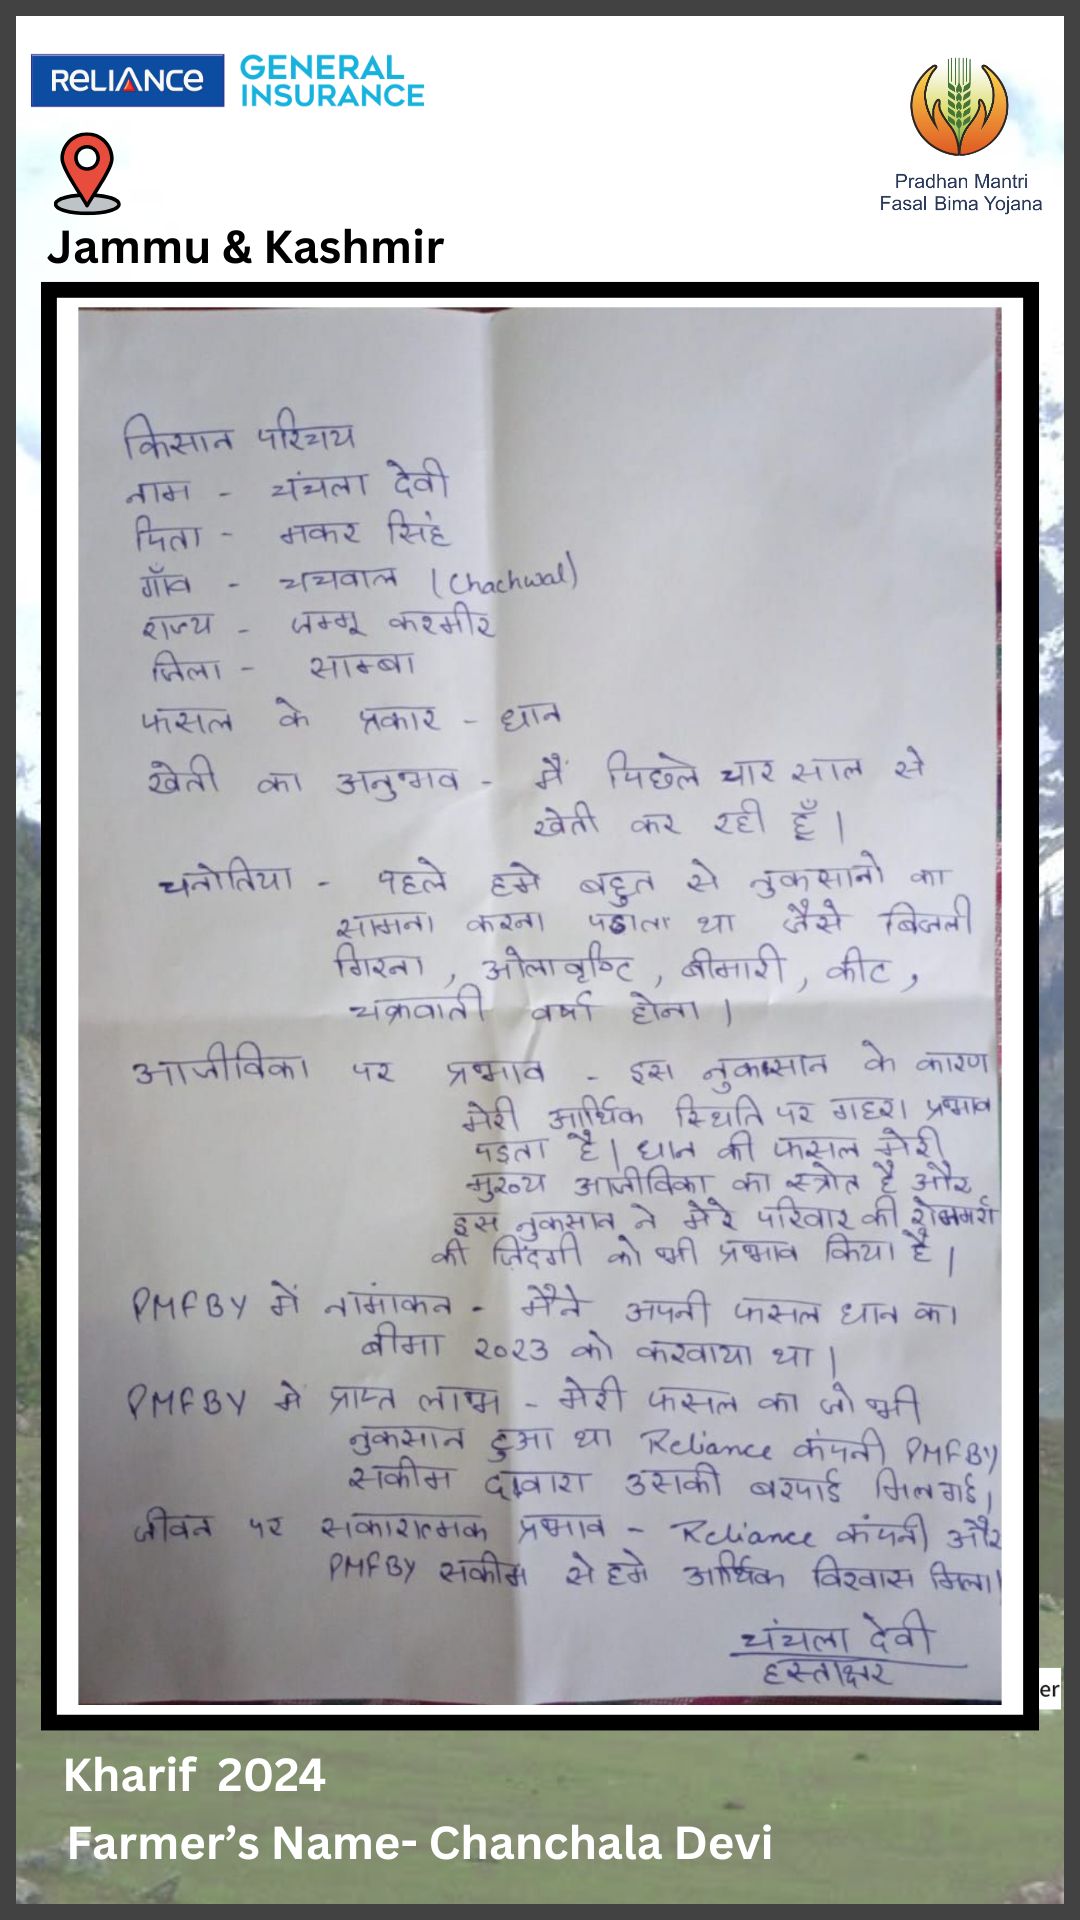 RELIANCE GENERAL INSURANCE
Pradhan Mantri
Fasal Bima Yojana
Jammu & Kashmir
किसान परिचय
नाम - चंचला देवी
पिता - मकर सिंह
गाँव - चचवाल (Chachwal)
राज्य - जम्मू कश्मीर
जिला - साम्बा
फसल के प्रकार - धान
खेती का अनुभव - मैं पिछले चार साल से
खेती कर रही हूँ।
चनोतिया - पहले हमे बहुत से नुकसानो का
सामना करना पडाता था जैसे बिजली
गिरना, ओलावृष्टि, बीमारी, कीट,
चक्रवाती वर्षा होना।
आजीविका पर प्रभाव - इस नुकसान के कारण
मेरी आर्थिक स्थिति पर गहरा प्रभाव
पड़ता है। धान की फसल मेरी
मुख्य आजीविका का स्त्रोत है और
इस नुकसान ने मेरे परिवार की रोजमर्रा
की ज़िंदगी को भी प्रभाव किया है।
PMFBY में नामांकन - मैंने अपनी फसल धान का
बीमा २०२३ को करवाया था।
PMFBY मे प्राप्त लाभ - मेरी फसल का जो भी
नुकसान हुआ था Reliance कंपनी PMFBY
सकीम द्वारा उसकी बरपाई मिल गई।
जीवन पर सकारात्मक प्रभाव - Reliance कंपनी और
PMFBY सकीम से हमे आर्थिक विश्वास मिला।
चंचला देवी
हस्ताक्षर
er
Kharif 2024
Farmer's Name- Chanchala Devi